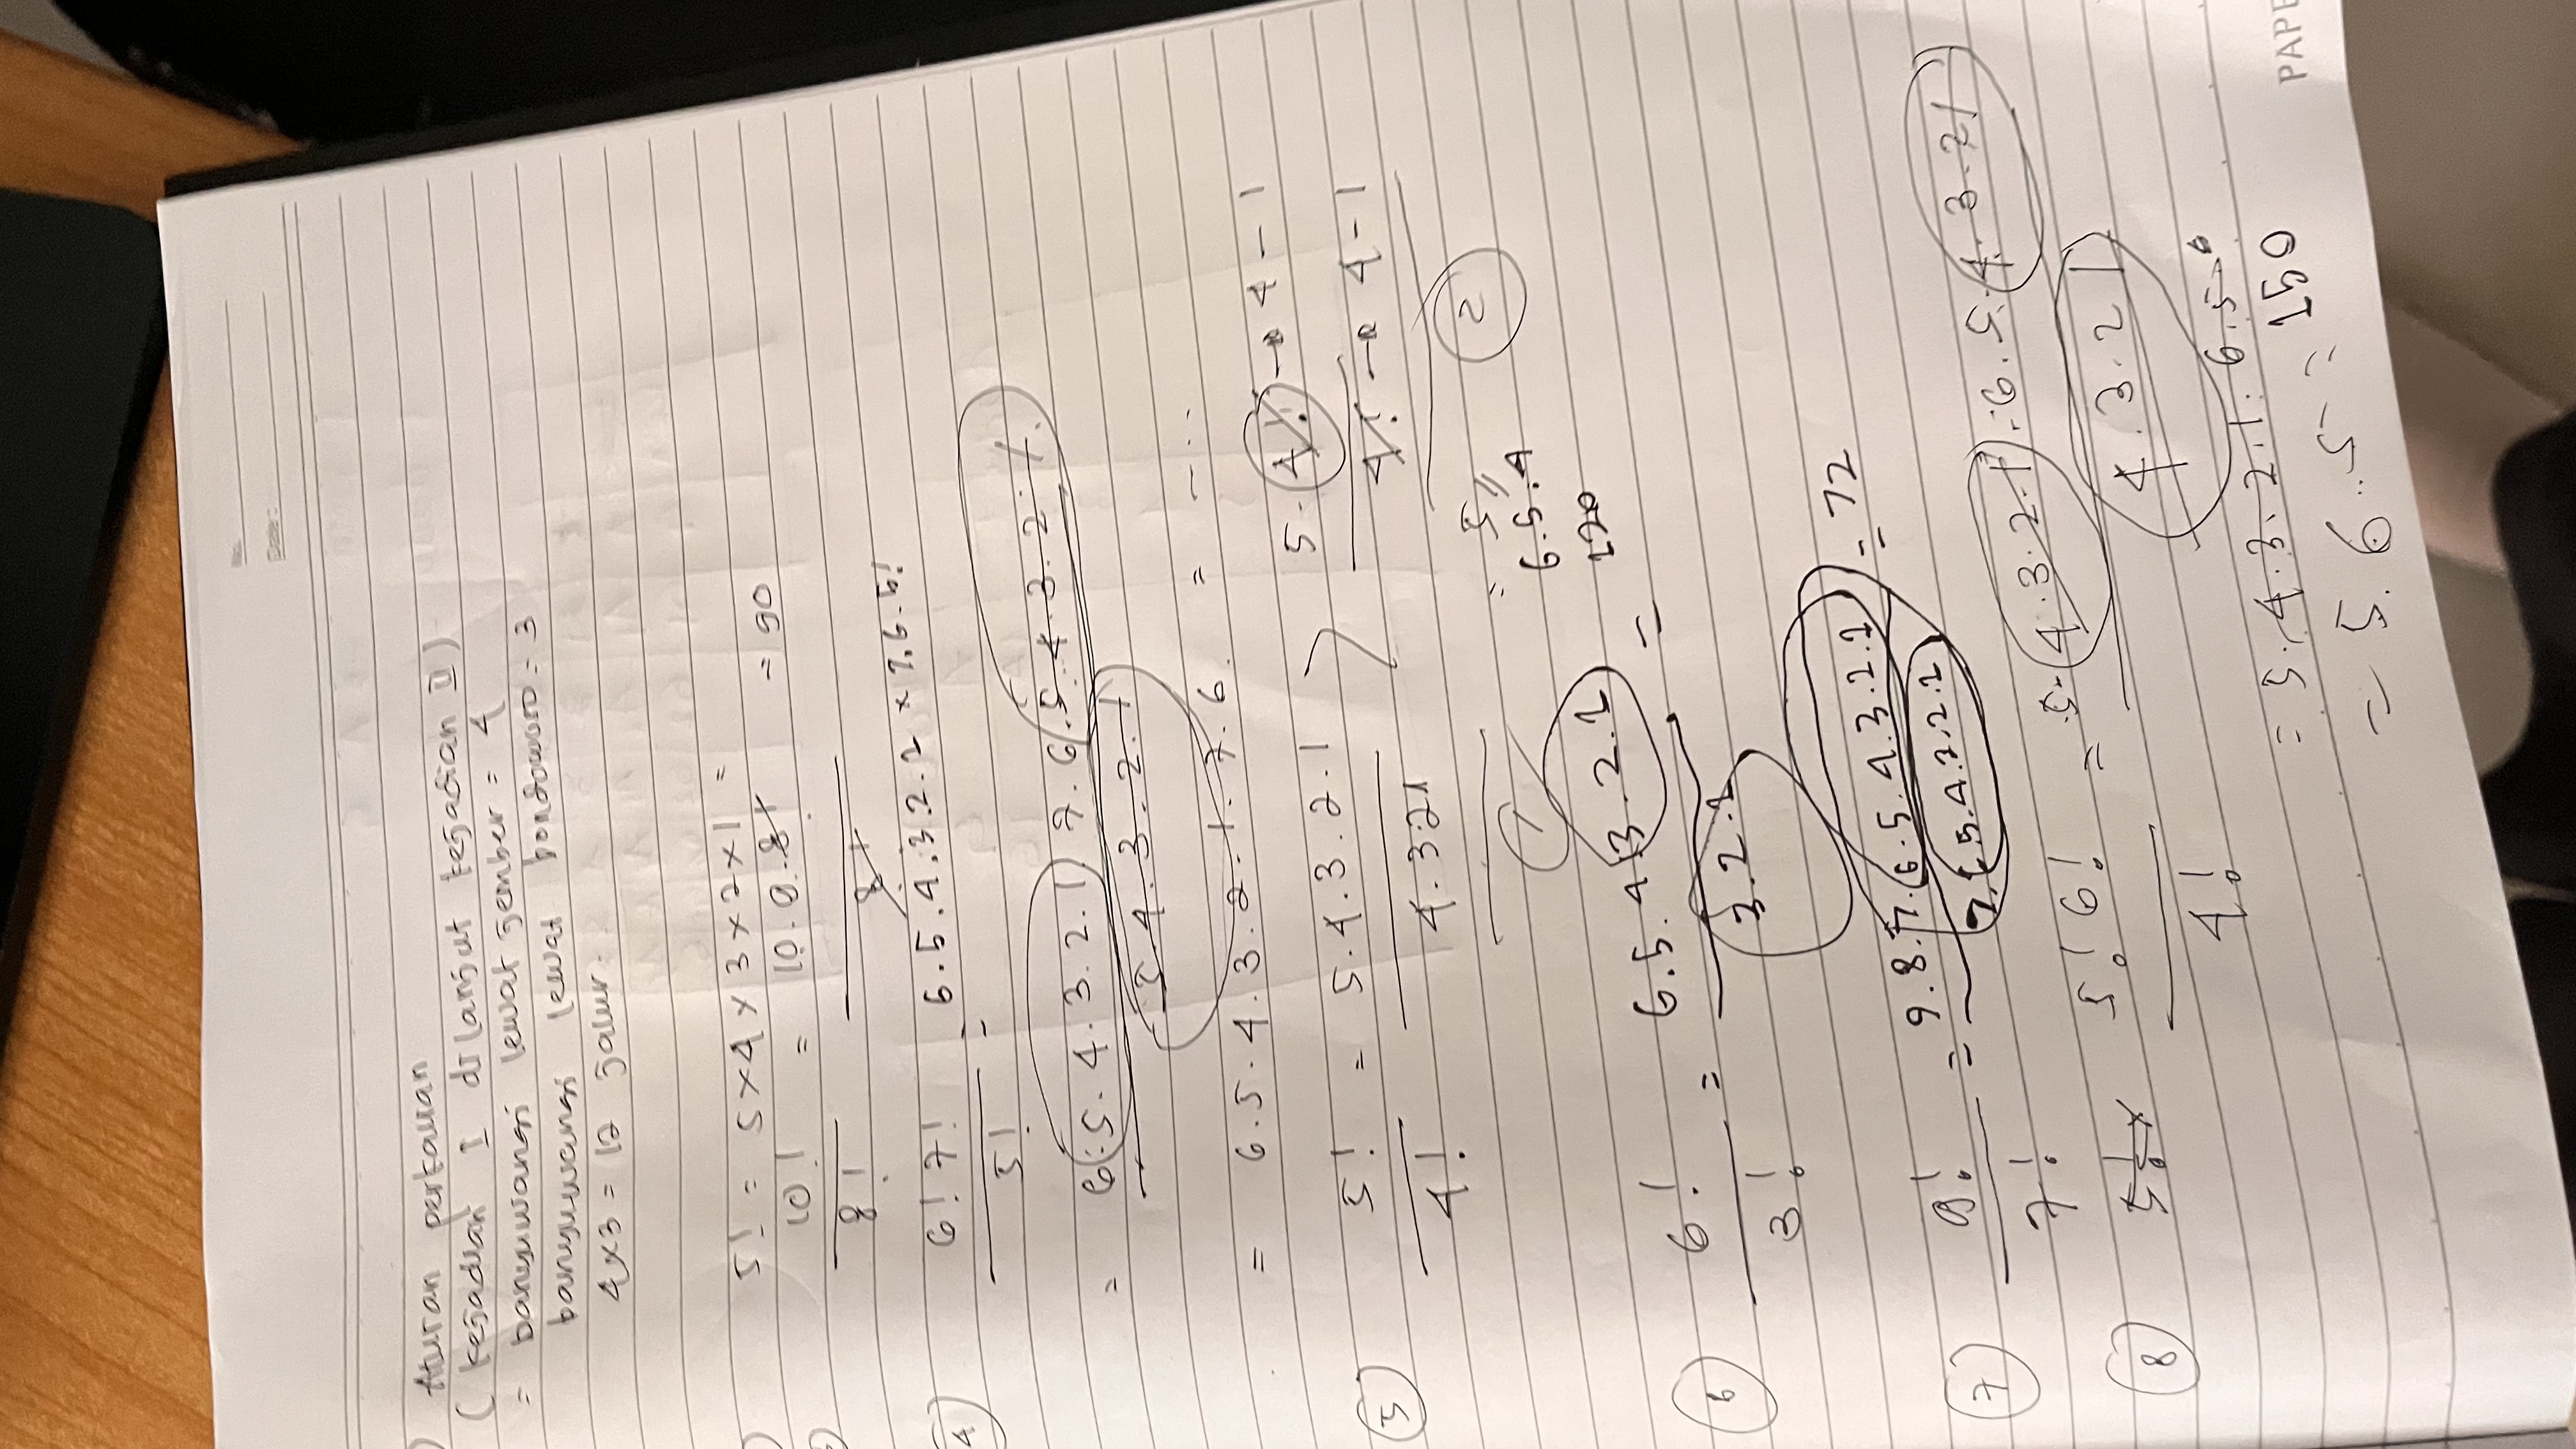 No.
Date:
Aturan perkalian
( kejadian I dilanjut kejadian II )
= banyuwangi lewat jember = 4
banyuwangi lewat bondowoso = 3
4x3 = 12 jalur.
5! = 5 x 4 x 3 x 2 x 1 =
10! = 10.9.8! = 90
8! 8!
④ 6! 7! = 6.5.4.3.2.1 x 7.6.5!
5!
= 6.5.4.3.2.1 7.6.5.4.3.2.1.
5.4.3.2.1
= 6.5.4.3.2.1.7.6. = ...
⑤ 5! = 5.4.3.2.1 5.4! → 4-1
4! 4.3.2.1 4! → 4-1
① = 5 ②
⑥ 6! = 6.5.4.3.2.1 = 6.5.4
3! 3.2.1 120
⑦ 9! = 9.8.7.6.5.4.3.2.1 = 72
7! 7.6.5.4.3.2.1
⑧ 5! 6! = 5.4.3.2.1.6.5.4.3.2.1
4! 4.3.2.1
= 5.4.3.2.1.6.5
= 5.6.5 = 150
PAPE